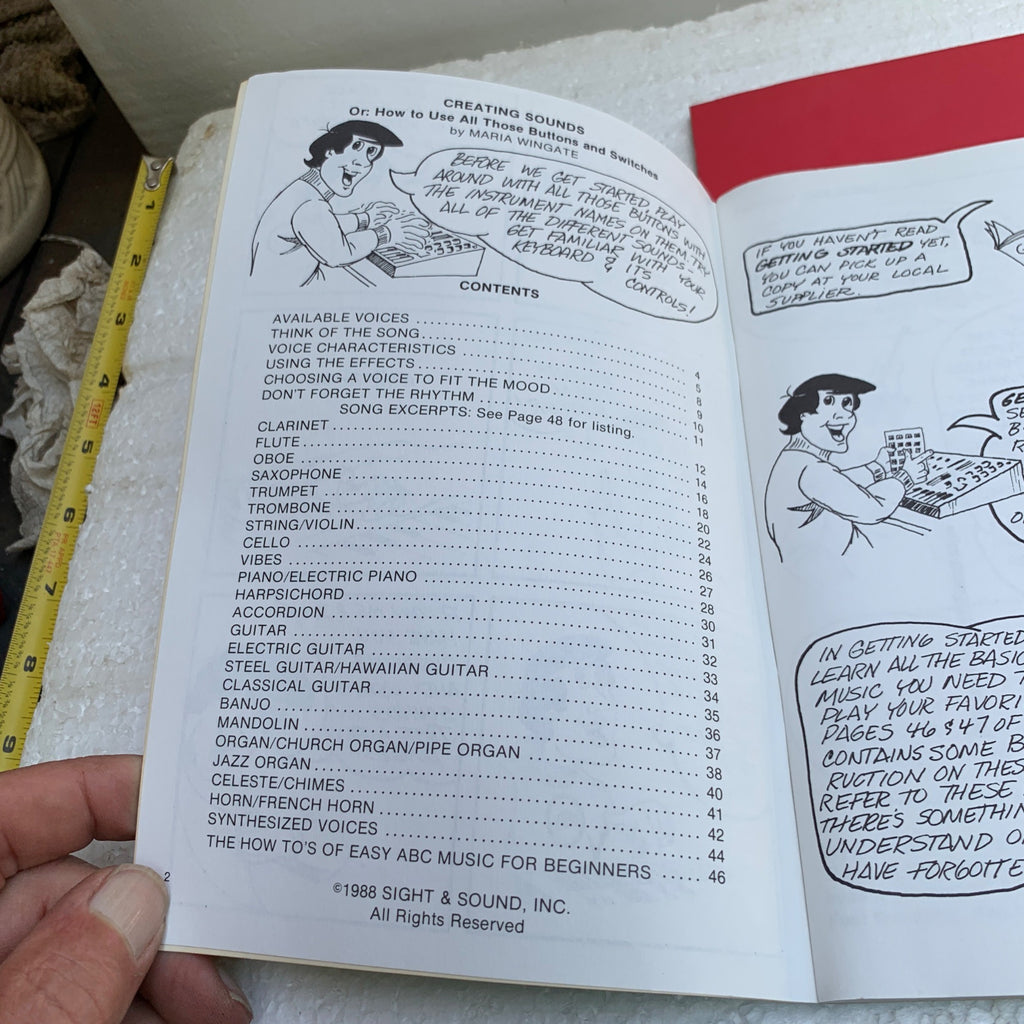 CREATING SOUNDS
Or: How to Use All Those Buttons and Switches
by MARIA WINGATE
BEFORE WE GET STARTED, PLAY
AROUND WITH ALL THOSE BUTTONS WITH
THE INSTRUMENT NAMES ON THEM. TRY
ALL OF THE DIFFERENT SOUNDS-
GET FAMILIAR WITH YOUR
KEYBOARD & ITS
CONTROLS!
CONTENTS
AVAILABLE VOICES 4
THINK OF THE SONG 5
VOICE CHARACTERISTICS 8
USING THE EFFECTS 9
CHOOSING A VOICE TO FIT THE MOOD 10
DON'T FORGET THE RHYTHM 11
SONG EXCERPTS: See Page 48 for listing.
CLARINET 12
FLUTE 14
OBOE 16
SAXOPHONE 18
TRUMPET 20
TROMBONE 22
STRING/VIOLIN 24
CELLO 26
VIBES 27
PIANO/ELECTRIC PIANO 28
HARPSICHORD 30
ACCORDION 31
GUITAR 32
ELECTRIC GUITAR 33
STEEL GUITAR/HAWAIIAN GUITAR 34
CLASSICAL GUITAR 35
BANJO 36
MANDOLIN 37
ORGAN/CHURCH ORGAN/PIPE ORGAN 38
JAZZ ORGAN 40
CELESTE/CHIMES 41
HORN/FRENCH HORN 42
SYNTHESIZED VOICES 44
THE HOW TO'S OF EASY ABC MUSIC FOR BEGINNERS 46
©1988 SIGHT & SOUND, INC.
All Rights Reserved
2
IF YOU HAVEN'T READ
GETTING STARTED YET,
YOU CAN PICK UP A
COPY AT YOUR LOCAL
SUPPLIER.
IN GETTING STARTED
LEARN ALL THE
MUSIC YOU NEED
PLAY YOUR
PAGES 46 & 47 OF
CONTAINS SOME
RUCTION ON
REFER TO THESE
THERE'S
UNDERSTAND
HAVE
1
2
3
4
12FT
5
6
7
8
9